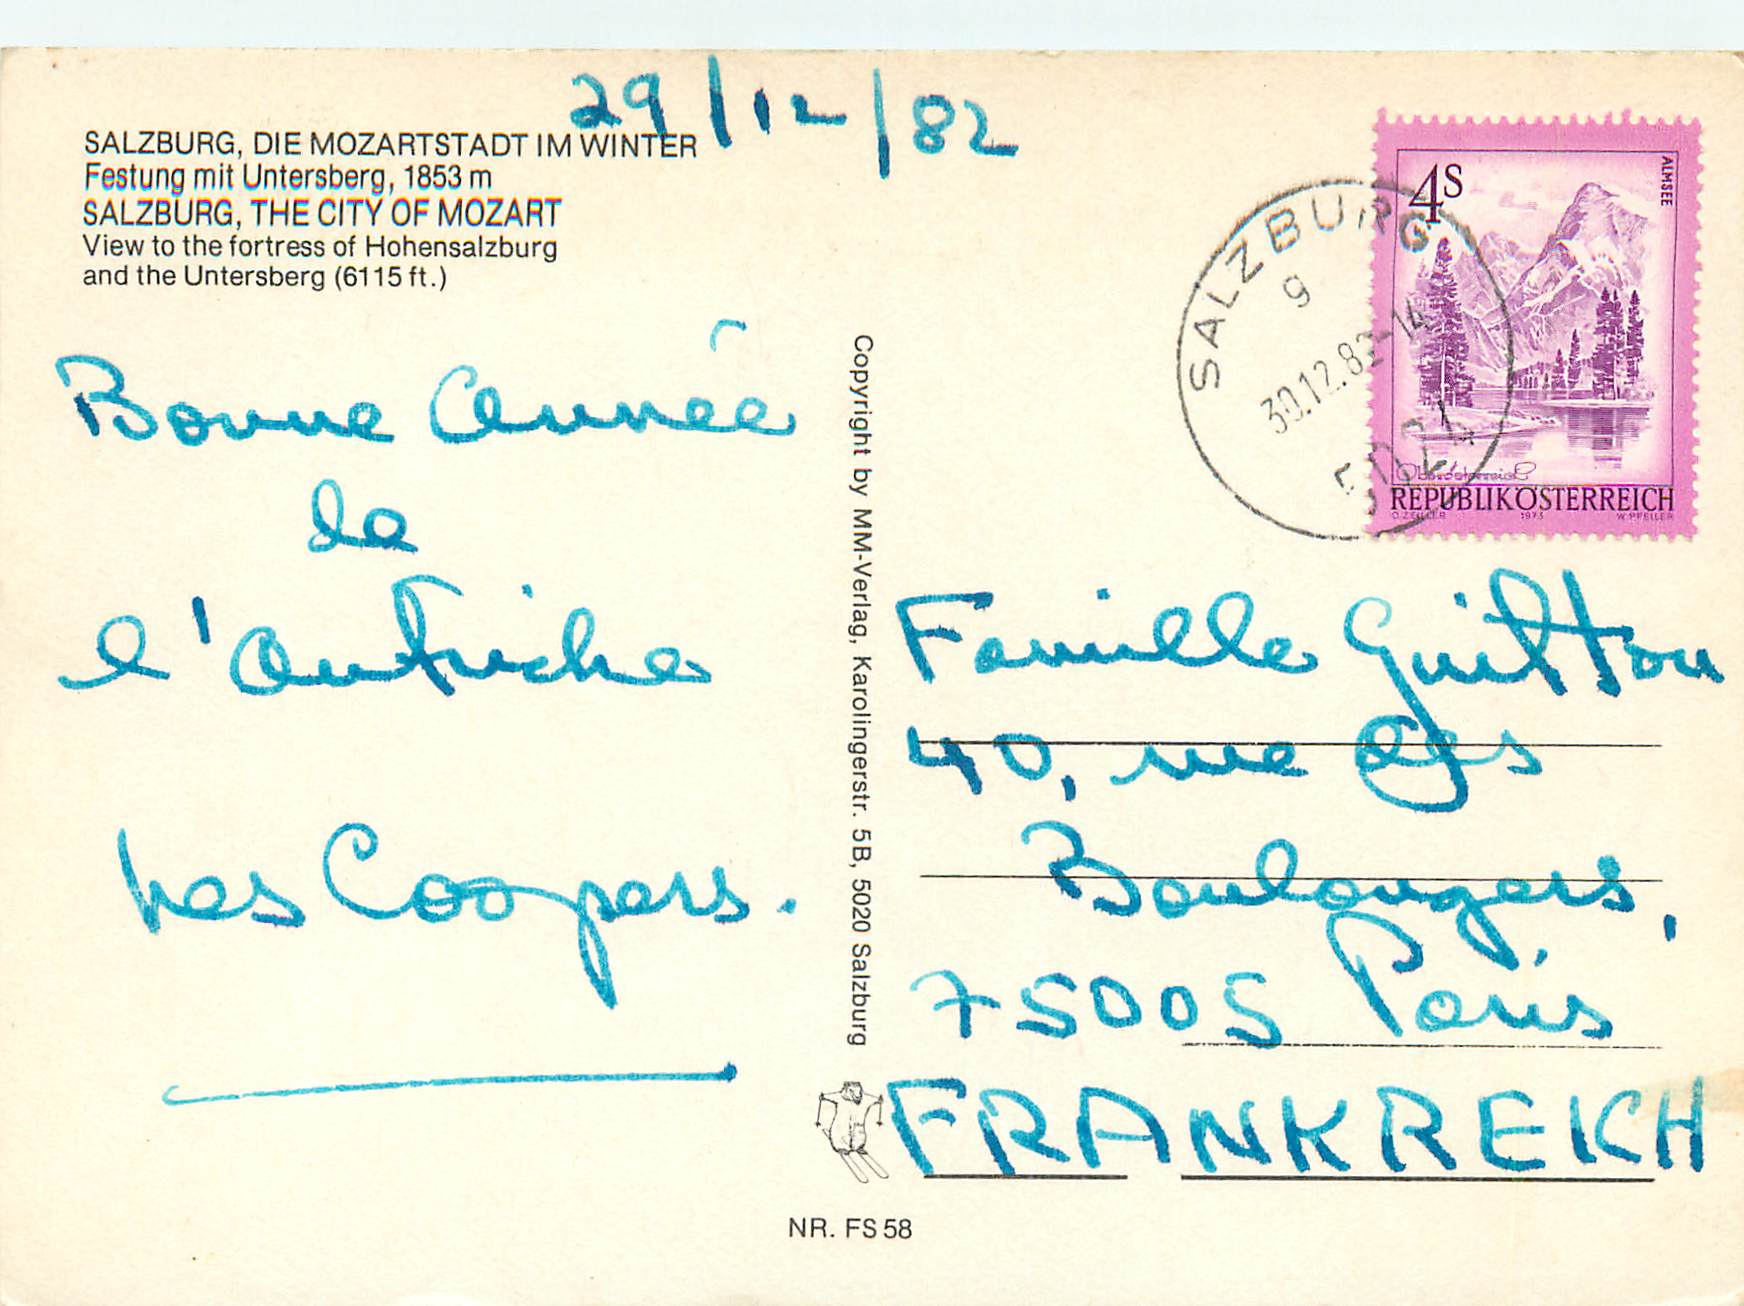 29/12/82
SALZBURG, DIE MOZARTSTADT IM WINTER
Festung mit Untersberg, 1853 m
SALZBURG, THE CITY OF MOZART
View to the fortress of Hohensalzburg
and the Untersberg (6115 ft.)
Bonne Année
de
l'Autriche
Les Coopers.
Copyright by MM-Verlag, Karolingerstr. 5B, 5020 Salzburg
NR. FS 58
SALZBURG
9
30.12.82-14
5024
4S
ALMSEE
Oberösterreich
REPUBLIK ÖSTERREICH
O.ZEILLER 1973 W.PFEILER
Famille Guitton
40, rue des
Boulangers,
75005 Paris
FRANKREICH